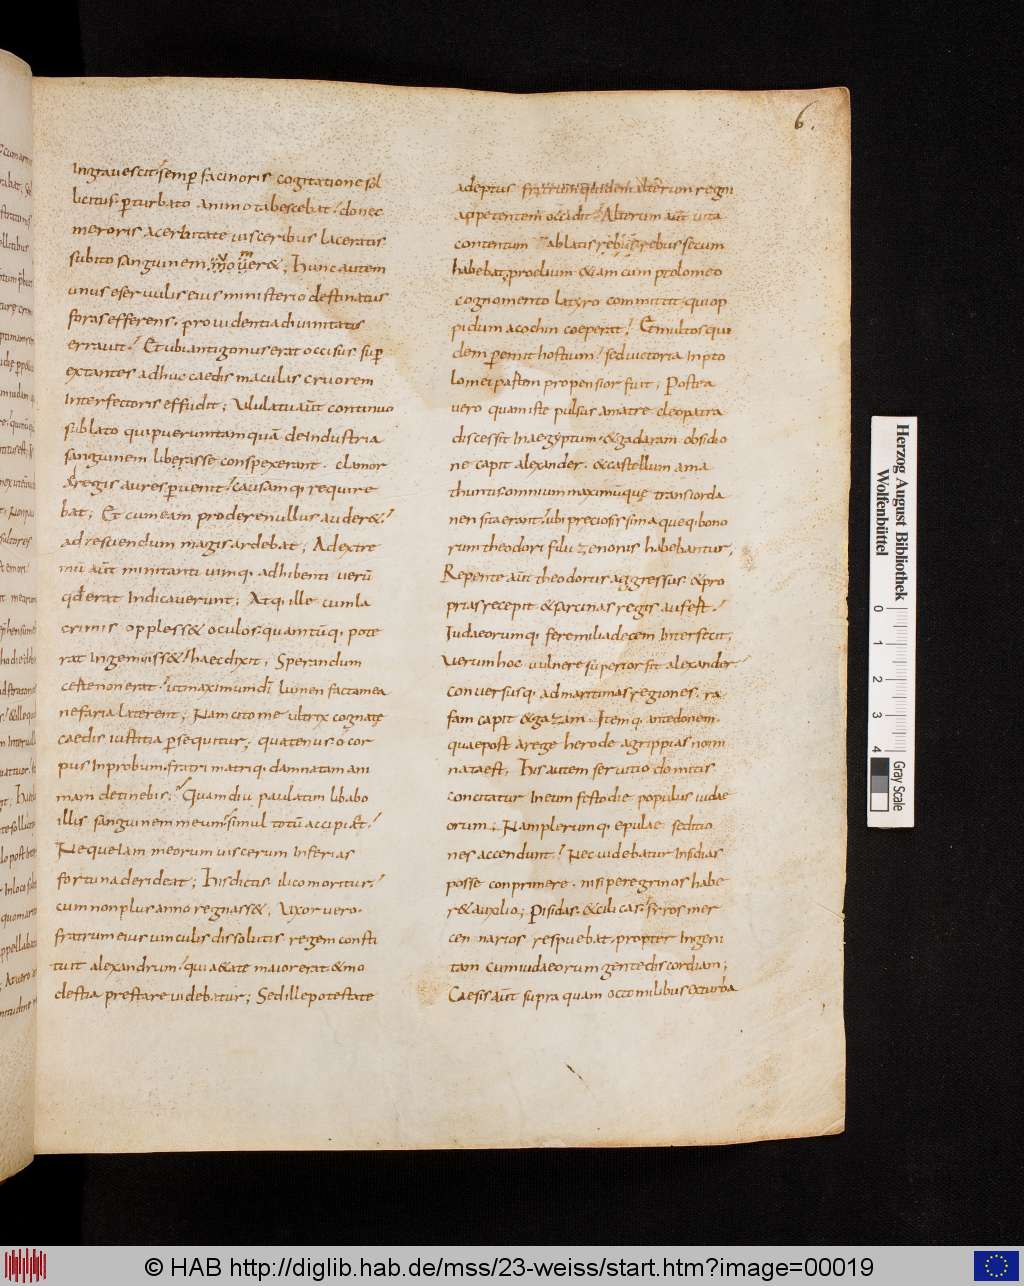 6.
Ingrauescit semp facinoris cogitatione sol
licitus pturbato animo tabescebat donec
meroris acerbitate uisceribus laceratis
subito sanguinem uomer&; Hunc autem
unus eseruulis eius ministerio destinatus
foras efferens. prouidentia diuinitatis
errauit. Et ubi antigonus erat occisus sup
extantes adhuc caedis maculas cruorem
Interfectoris effudit; Vlulatu aut continuo
sublato qui puerum tamquã de Industria
sanguinem liberasse conspexerant. clamor
ad regis aures puenit causamq; require
bat; Et cum eam prodere nullus auder&
ad resciendum magis ardebat; Ad extre
mũ aut minitanti uimq; adhibenti uerũ
qd erat Indicauerunt; Atq; ille cum la
crimis oppless& oculos quantũq; pote
rat Ingemiss& haec dixit; Sperandum
certe non erat ut maximum di lumen facta mea
nefaria laterent; Nam cito me ultrix cognate
caedis iustitia psequitur; quatenus o cor
pus Inprobum. fratri matriq; damnatam ani
mam detinebis; Quamdiu paulatim libabo
illis sanguinem meum. simul totũ accipiãt
Neque Iam meorum uiscerum Inferias
fortuna derideat; His dictis ilico moritur
cum non plus anno regnass&; Vxor uero.
fratrum eius uinculis dissolutis regem consti
tuit alexandrum quia &ate maior erat & mo
destia prestare uidebatur; Sed ille potestate
adeptus fratrem quidem alterum regni
appetentem occidit Alterum aut uita
contentum ablatis rebus secum
habebat; proelium &iam cum ptolomeo
cognomento latyro committit. qui op
pidum acochin coeperat Et multos qui
dem pemit hostium sed uictoria Inpto
lomei parton propensior fuit; Postea
uero quam iste pulsus a matre cleopatra
discessit In aegyptum. & gadaram obsidio
ne capit alexander. & castellum ama
thuntis omnium maximum que trans iorda
nen sita erant ubi preciosissima queq; bono
rum theodori filii zenonis habebantur,
Repente aut theodorus aggressus & pro
prias recepit & sarcinas regis aufert
Iudaeorumq; fere milia decem Intersecit;
Verum hoc uulnere superior fit alexander
conuersusq; ad maritimas regiones. ra
fam capit & gazam. Itemq; antedonem.
quae post a rege herode agrippias nomi
nata est. His autem seruitio domitis
concitatur In eum festo die populus iudae
orum; Nam plerumq; epulae seditio
nes accendunt Nec uidebatur Insidias
posse conprimere. nisi peregrinos habe
r& auxilio; Pisidas. & cilicas. syros mer
cennarios respuebat. propter Ingeni
tam cum iudaeorum gente discordiam;
Caesis aut supra quam octo milibus exturba
Herzog August Bibliothek
Wolfenbüttel
0 1 2 3 4
Gray Scale
© HAB http://diglib.hab.de/mss/23-weiss/start.htm?image=00019